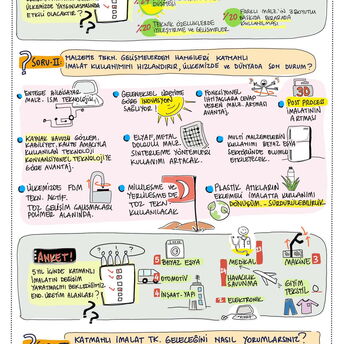 ÜLKEMİZDE YAYGINLAŞMASINDA
ETKİLİ OLACAKTIR?
%20
TEKNİK ÖZELLİKLERDE
İYİLEŞTİRME VE GELİŞMELER
%20
FARKLI MALZ.'İN 3 BOYUTLU
BASKIDA BİRARADA
KULLANILMASI
SORU-II
MALZEME TEKN. GELİŞMELERDEN HANGİLERİ KATMANLI
İMALAT KULLANIMINI HIZLANDIRIR, ÜLKEMİZDE VE DÜNYADA SON DURUM?
ENTEGRE BİLGİSAYAR
MALZ. ISM TEKNOLOJİK
GELENEKSEL ÜRETİME
GÖRE İNOVASYON
SAĞLIYOR!
FONKSİYONEL
İHTİYAÇLARA CEVAP
VEREBİLMESİ
GÖRE AVANTAJ.
POST PROCESS
İMALATININ
ARTMASI
KAYNAK HAVUZU GÖZLEM,
KABİLİYET, KALİTE AMAÇIYLA
KULLANILAN TEKNOLOJİ
KONVANSİYONEL TEKNOLOJİ'YE
GÖRE AVANTAJ.
ELYAF, METAL
DOLGULU MALZ.
SİNTERLEME YÖNTEMLERİ
KULLANIMI ARTACAK.
MULTI MALZEMELERİN
KULLANIMI BEYAZ EŞYA
SEKTÖRÜNDE OLUMLU
ETKİLEYECEK.
ÜLKEMİZDE FDM
TEKN. AKTİF.
TOZ GELİŞİM ÇALIŞMALARI
POLİMER ALANINDA.
MİLLİLEŞME VE
YERLİLEŞME'DE
TOZ TEKN.
KULLANILACAK
PLASTİK ATIKLARIN
EKLEMELİ İMALATTA KULLANIMI
DÖNÜŞÜM - SÜRDÜRÜLEBİLİRLİK
ANKET!
5 YIL İÇİNDE KATMANLI
İMALATIN DEĞİŞİM
YARATMASINI BEKLEDİĞİNİZ
END. ÜRETİM ALANLARI?
5 BEYAZ EŞYA
4 OTOMOTİV
4 İNŞAAT-YAPI
MEDİKAL
HAVACILIK
SAVUNMA
ELEKTRONİK
MAKİNE 3
GİYİM
TEKSTİL
KATMANLI İMALAT TK. GELECEĞİNİ NASIL YORUMLARSINIZ?